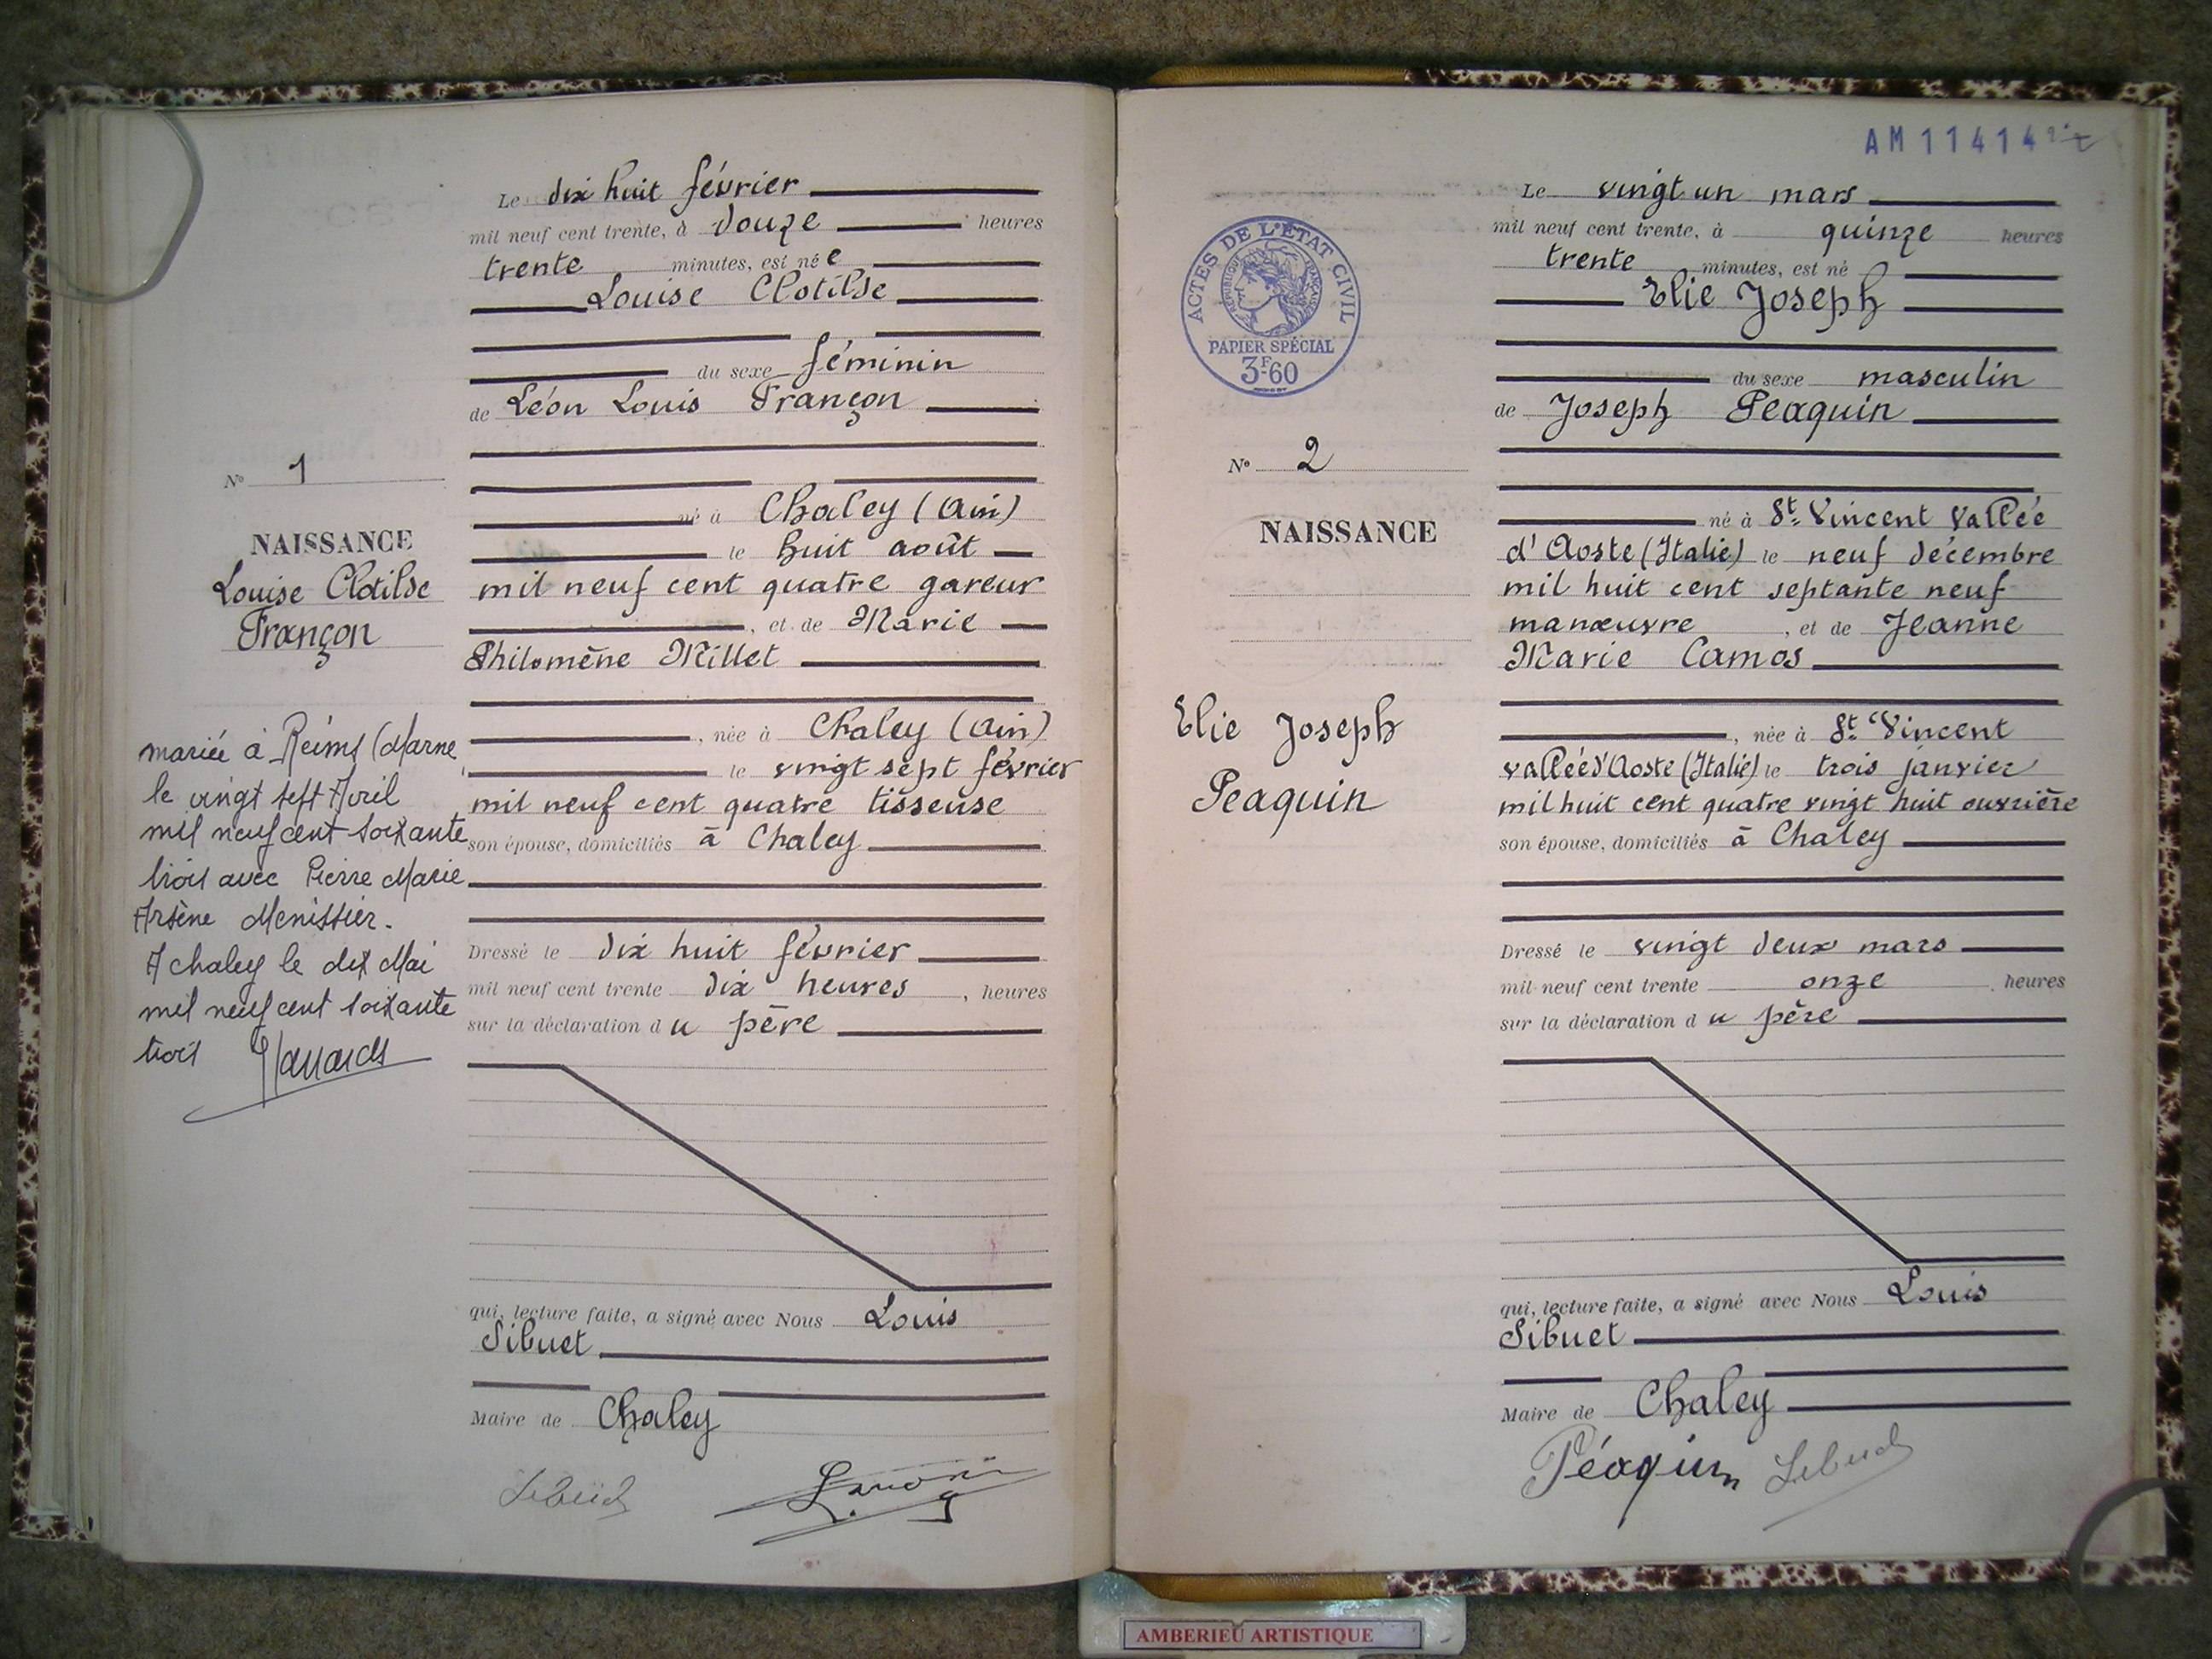 Le dix huit février
mil neuf cent trente, à douze heures
trente minutes, est née
Louise Clotilde
du sexe féminin
de Léon Louis Françon
né à Chaley (Ain)
le huit août
mil neuf cent quatre gareur
, et de Marie
Philomène Millet
, née à Chaley (Ain)
le vingt sept février
mil neuf cent quatre tisseuse
son épouse, domiciliés à Chaley
Dressé le dix huit février
mil neuf cent trente dix heures , heures
sur la déclaration du père
qui, lecture faite, a signé avec Nous Louis
Sibuet
Maire de Chaley
Sibuet
N° 1
NAISSANCE
Louise Clotilde
Françon
mariée à Reims (Marne
le vingt sept Avril
mil neuf cent soixante
trois avec Pierre Marie
Arsène Menissier.
A chaley le dix Mai
mil neuf cent soixante
trois
AM 11414
ACTES DE L'ÉTAT CIVIL
RÉPUBLIQUE FRANÇAISE
PAPIER SPÉCIAL
3F60
N° 2
NAISSANCE
Elie Joseph
Peaquin
Le vingt un mars
mil neuf cent trente, à quinze heures
trente minutes, est né
Elie Joseph
du sexe masculin
de Joseph Peaquin
né à St Vincent Vallée
d'Aoste (Italie) le neuf décembre
mil huit cent septante neuf
manœuvre , et de Jeanne
Marie Camos
, née à St Vincent
vallée d'Aoste (Italie) le trois janvier
mil huit cent quatre vingt huit ouvrière
son épouse, domiciliés à Chaley
Dressé le vingt deux mars
mil neuf cent trente onze heures
sur la déclaration du père
qui, lecture faite, a signé avec Nous Louis
Sibuet
Maire de Chaley
Péaquin Sibuet
AMBERIEU ARTISTIQUE